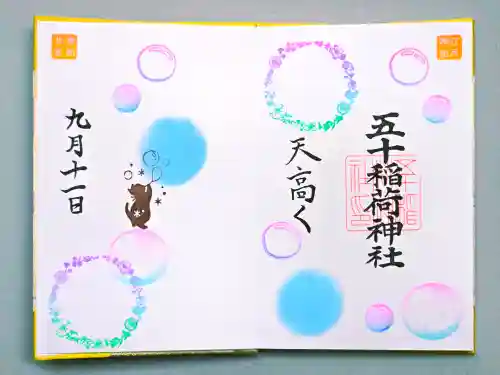 五十稲荷神社
天高く
九月十一日